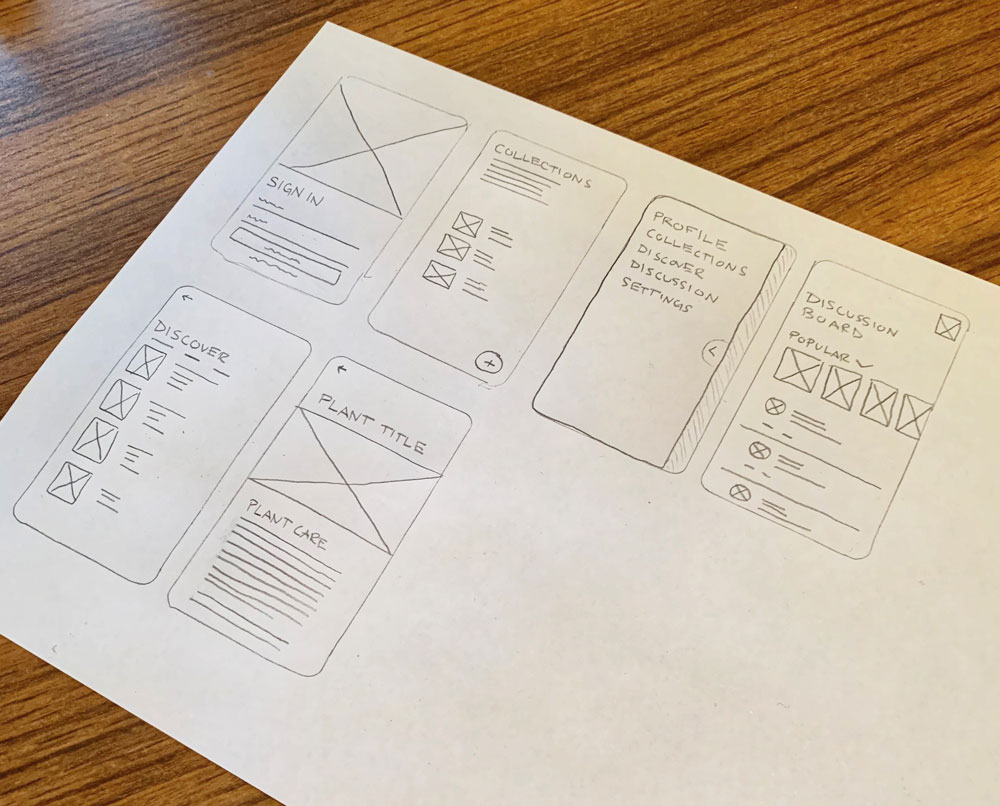 SIGN IN
COLLECTIONS
PROFILE
COLLECTIONS
DISCOVER
DISCUSSION
SETTINGS
DISCUSSION
BOARD
POPULAR
DISCOVER
PLANT TITLE
PLANT CARE